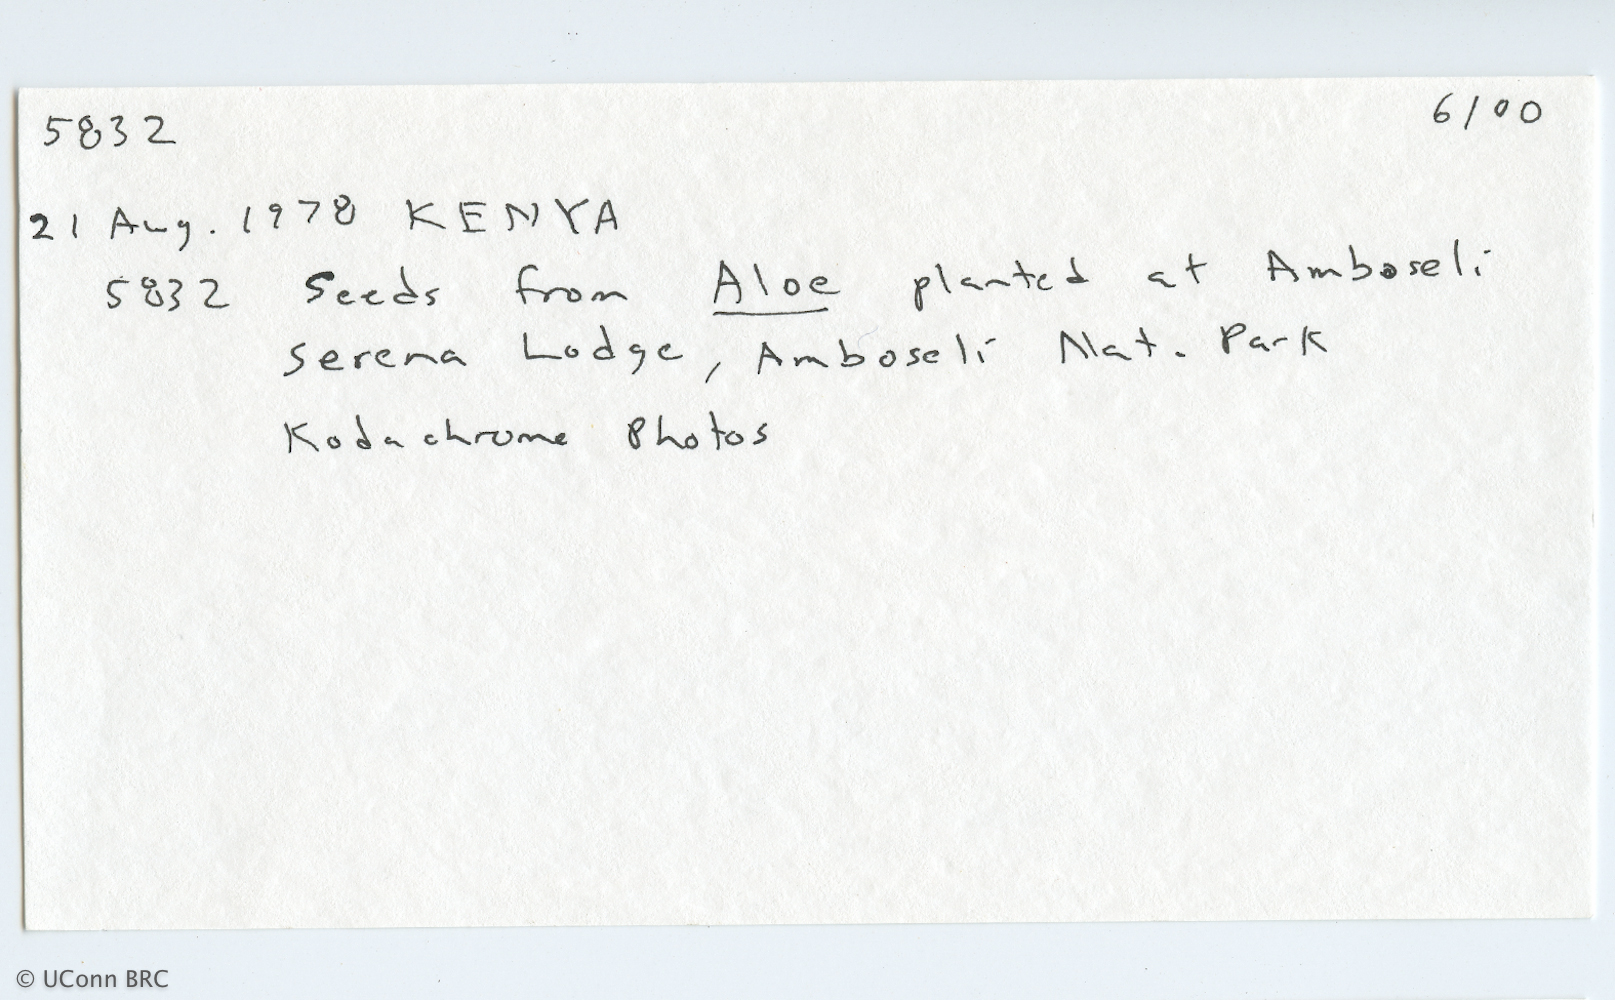 5832
6/00
21 Aug. 1978 KENYA
5832 Seeds from Aloe planted at Amboseli
Serena Lodge, Amboseli Nat. Park
Kodachrome Photos
© UConn BRC